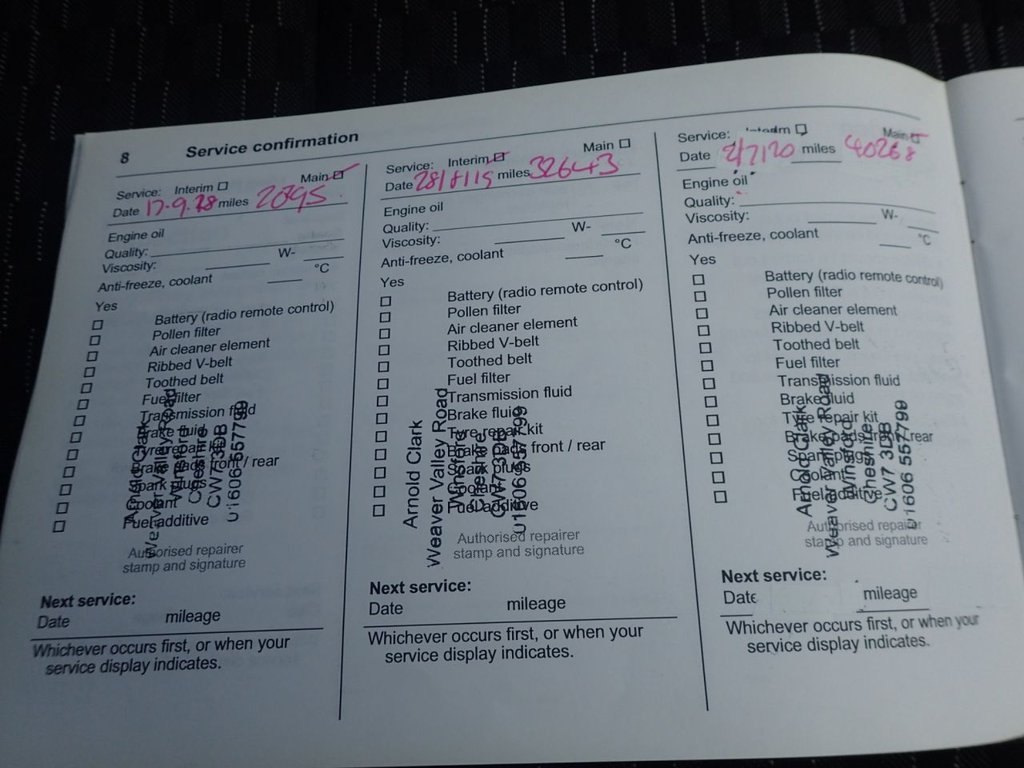 8 Service confirmation
Service: Interim Main
Date 17.9.18 miles
Engine oil
Quality:
Viscosity: W-
Anti-freeze, coolant °C
Yes
Battery (radio remote control)
Pollen filter
Air cleaner element
Ribbed V-belt
Toothed belt
Fuel filter
Transmission fluid
Brake fluid
Tyre repair kit
Brake pads front / rear
Spark plugs
Coolant
Fuel additive
Arnold Clark
Weaver Valley Road
Winsford
Cheshire
CW7 3DB
01606 557799
Authorised repairer
stamp and signature
Next service:
Date mileage
Whichever occurs first, or when your
service display indicates.
Service: Interim Main
Date 28/8/19 miles 32643
Engine oil
Quality:
Viscosity: W-
Anti-freeze, coolant °C
Yes
Battery (radio remote control)
Pollen filter
Air cleaner element
Ribbed V-belt
Toothed belt
Fuel filter
Transmission fluid
Brake fluid
Tyre repair kit
Brake pads front / rear
Spark plugs
Coolant
Fuel additive
Arnold Clark
Weaver Valley Road
Winsford
Cheshire
CW7 3DB
01606 557799
Authorised repairer
stamp and signature
Next service:
Date mileage
Whichever occurs first, or when your
service display indicates.
Service: Interim Main
Date 2/7/20 miles 40268
Engine oil
Quality:
Viscosity: W-
Anti-freeze, coolant °C
Yes
Battery (radio remote control)
Pollen filter
Air cleaner element
Ribbed V-belt
Toothed belt
Fuel filter
Transmission fluid
Brake fluid
Tyre repair kit
Brake pads front / rear
Spark plugs
Coolant
Fuel additive
Arnold Clark
Weaver Valley Road
Winsford
Cheshire
CW7 3DB
01606 557799
Authorised repairer
stamp and signature
Next service:
Date mileage
Whichever occurs first, or when your
service display indicates.